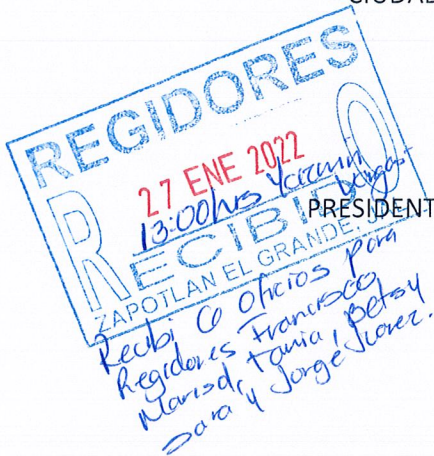 CIUDAD
REGIDORES
27 ENE 2022
13:00hrs Yazmin
Vargas
PRESIDENT
RECIBIDO
ZAPOTLAN EL GRANDE,
Recibi 6 oficios para
Regidores Francisco,
Marisol, Tania, Betsy
Sara y Jorge Juarez.